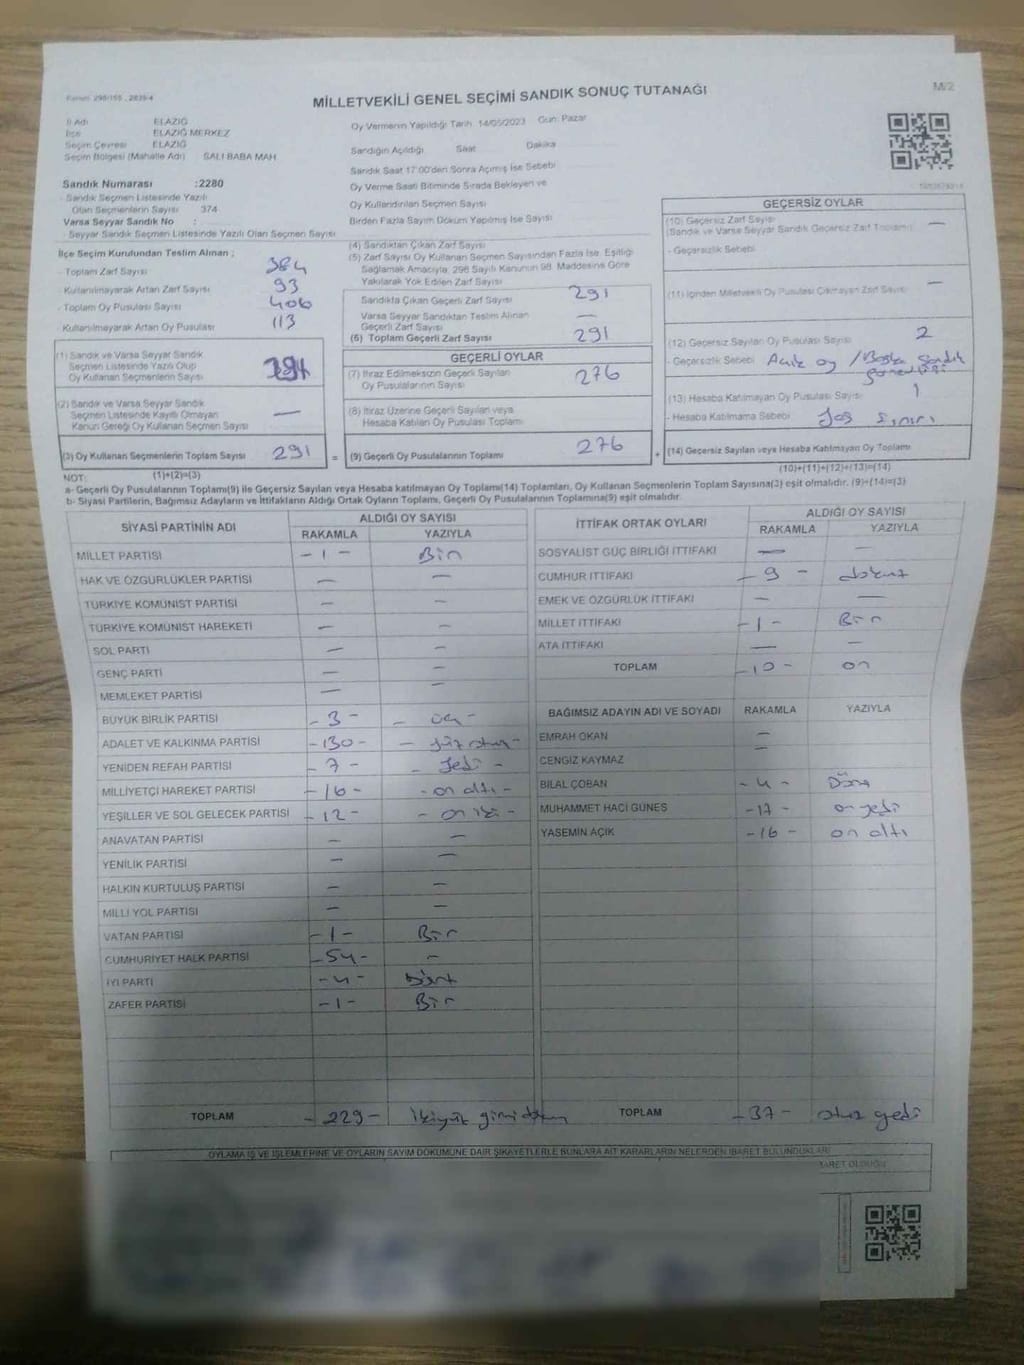 MİLLETVEKİLİ GENEL SEÇİMİ SANDIK SONUÇ TUTANAĞI
M/2
İl Adı ELAZIĞ
İlçe ELAZIĞ MERKEZ
Seçim Çevresi ELAZIĞ
Seçim Bölgesi (Mahalle Adı) SALI BABA MAH
Sandık Numarası :2280
- Sandık Seçmen Listesinde Yazılı
Olan Seçmenlerin Sayısı 374
Varsa Seyyar Sandık No :
- Seyyar Sandık Seçmen Listesinde Yazılı Olan Seçmen Sayısı
Oy Vermenin Yapıldığı Tarih: 14/05/2023 Gün: Pazar
Sandığın Açıldığı Saat Dakika
Sandık Saat 17:00'den Sonra Açılmış İse Sebebi
Oy Verme Saati Bitiminde Sırada Bekleyen ve
Oy Kullandırılan Seçmen Sayısı
Birden Fazla Sayım Döküm Yapılmış İse Sayısı
İlçe Seçim Kurulundan Teslim Alınan ;
- Toplam Zarf Sayısı 384
- Kullanılmayarak Artan Zarf Sayısı 93
- Toplam Oy Pusulası Sayısı 406
- Kullanılmayarak Artan Oy Pusulası 113
(1) Sandık ve Varsa Seyyar Sandık
Seçmen Listesinde Yazılı Olup
Oy Kullanan Seçmenlerin Sayısı 291
(2) Sandık ve Varsa Seyyar Sandık
Seçmen Listesinde Kayıtlı Olmayan
Kanun Gereği Oy Kullanan Seçmen Sayısı —
(3) Oy Kullanan Seçmenlerin Toplam Sayısı 291 =
(1)+(2)=(3)
(4) Sandıktan Çıkan Zarf Sayısı
(5) Zarf Sayısı Oy Kullanan Seçmen Sayısından Fazla İse, Eşitliği
Sağlamak Amacıyla, 298 Sayılı Kanunun 98. Maddesine Göre
Yakılarak Yok Edilen Zarf Sayısı
Sandıkta Çıkan Geçerli Zarf Sayısı 291
Varsa Seyyar Sandıktan Teslim Alınan
Geçerli Zarf Sayısı —
(6) Toplam Geçerli Zarf Sayısı 291
GEÇERLİ OYLAR
(7) İtiraz Edilmeksizin Geçerli Sayılan
Oy Pusulalarının Sayısı 276
(8) İtiraz Üzerine Geçerli Sayılan veya
Hesaba Katılan Oy Pusulası Toplamı
(9) Geçerli Oy Pusulalarının Toplamı 276 +
GEÇERSİZ OYLAR
(10) Geçersiz Zarf Sayısı
(Sandık ve Varsa Seyyar Sandık Geçersiz Zarf Toplamı) —
- Geçersizlik Sebebi
(11) İçinden Milletvekili Oy Pusulası Çıkmayan Zarf Sayısı —
(12) Geçersiz Sayılan Oy Pusulası Sayısı 2
- Geçersizlik Sebebi Açık oy / Başka Sandık
(13) Hesaba Katılmayan Oy Pusulası Sayısı 1
- Hesaba Katılmama Sebebi Yaş Sınırı
(14) Geçersiz Sayılan veya Hesaba Katılmayan Oy Toplamı
(10)+(11)+(12)+(13)=(14)
NOT:
a- Geçerli Oy Pusulalarının Toplamı(9) ile Geçersiz Sayılan veya Hesaba katılmayan Oy Toplamı(14) Toplamları, Oy Kullanan Seçmenlerin Toplam Sayısına(3) eşit olmalıdır. (9)+(14)=(3)
b- Siyasi Partilerin, Bağımsız Adayların ve İttifakların Aldığı Ortak Oyların Toplamı, Geçerli Oy Pusulalarının Toplamına(9) eşit olmalıdır.
SİYASİ PARTİNİN ADI ALDIĞI OY SAYISI
RAKAMLA YAZIYLA
MİLLET PARTİSİ -1- Bir
HAK VE ÖZGÜRLÜKLER PARTİSİ — —
TÜRKİYE KOMÜNİST PARTİSİ — —
TÜRKİYE KOMÜNİST HAREKETİ — —
SOL PARTİ — —
GENÇ PARTİ — —
MEMLEKET PARTİSİ — —
BÜYÜK BİRLİK PARTİSİ -3- - üç -
ADALET VE KALKINMA PARTİSİ -130- - yüz otuz -
YENİDEN REFAH PARTİSİ -7- - yedi -
MİLLİYETÇİ HAREKET PARTİSİ -16- - on altı -
YEŞİLLER VE SOL GELECEK PARTİSİ -12- - on iki -
ANAVATAN PARTİSİ — —
YENİLİK PARTİSİ — —
HALKIN KURTULUŞ PARTİSİ — —
MİLLİ YOL PARTİSİ — —
VATAN PARTİSİ -1- Bir
CUMHURİYET HALK PARTİSİ -54- —
İYİ PARTİ -4- Dört
ZAFER PARTİSİ -1- Bir
TOPLAM -229- ikiyüz yirmi dokuz
İTTİFAK ORTAK OYLARI ALDIĞI OY SAYISI
RAKAMLA YAZIYLA
SOSYALİST GÜÇ BİRLİĞİ İTTİFAKI — —
CUMHUR İTTİFAKI -9- dokuz
EMEK VE ÖZGÜRLÜK İTTİFAKI — —
MİLLET İTTİFAKI -1- Bir
ATA İTTİFAKI — —
TOPLAM -10- on
BAĞIMSIZ ADAYIN ADI VE SOYADI RAKAMLA YAZIYLA
EMRAH OKAN —
CENGİZ KAYMAZ —
BİLAL ÇOBAN -4- Dört
MUHAMMET HACI GÜNEŞ -17- on yedi
YASEMİN AÇIK -16- on altı
TOPLAM -37- otuz yedi
OYLAMA İŞ VE İŞLEMLERİNE VE OYLARIN SAYIM DÖKÜMÜNE DAİR ŞİKAYETLERLE BUNLARA AİT KARARLARIN NELERDEN İBARET BULUNDUKLARI